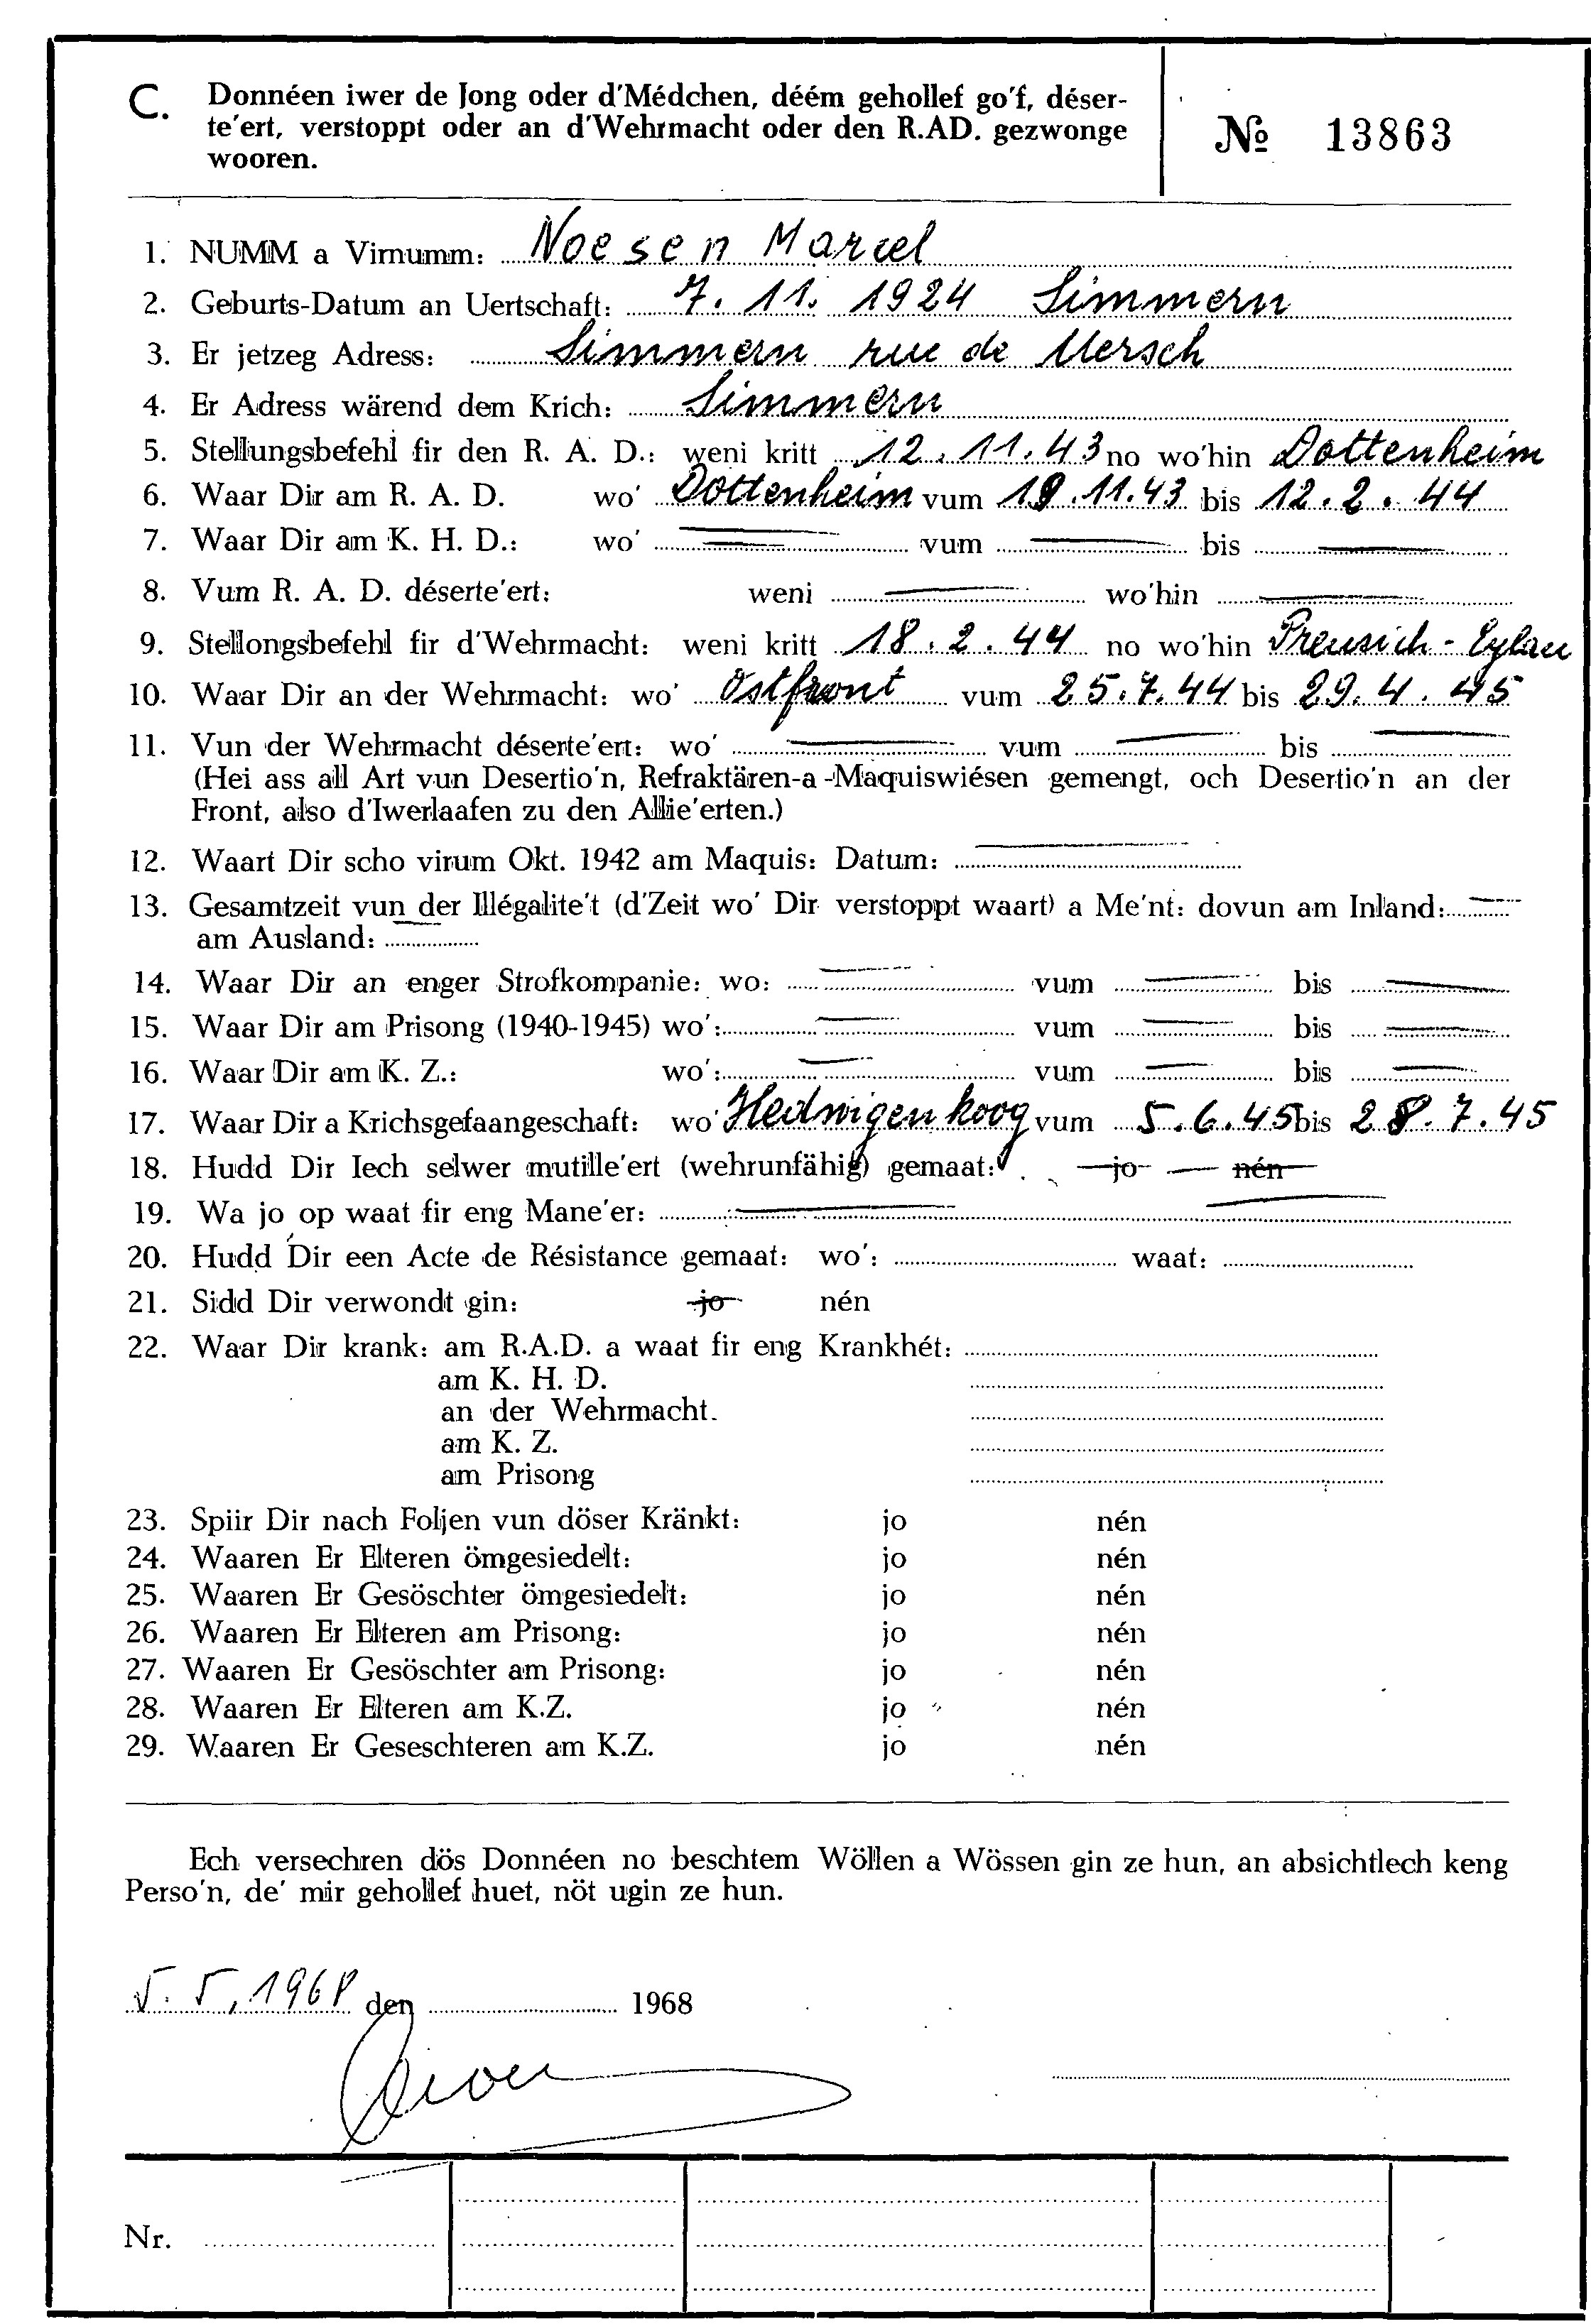 C. Donnéen iwer de Jong oder d'Médchen, déém gehollef go'f, déser-
te'ert, verstoppt oder an d'Wehrmacht oder den R.AD. gezwonge
wooren.
№ 13863
1. NUMM a Virnumm: Noesen Marcel
2. Geburts-Datum an Uertschaft: 7. 11. 1924 Simmern
3. Er jetzeg Adress: Simmern rue de Mersch
4. Er Adress wärend dem Krich: Simmern
5. Stellungsbefehl fir den R. A. D.: weni kritt 12. 11. 43 no wo'hin Dottenheim
6. Waar Dir am R. A. D. wo' Dottenheim vum 19.11.43 bis 12.2.44
7. Waar Dir am K. H. D.: wo' vum bis
8. Vum R. A. D. déserte'ert: weni wo'hin
9. Stellongsbefehl fir d'Wehrmacht: weni kritt 18.2.44 no wo'hin Preusich-Eylau
10. Waar Dir an der Wehrmacht: wo' Ostfront vum 25.7.44 bis 29.4.45
11. Vun der Wehrmacht déserte'ert: wo' vum bis
(Hei ass all Art vun Desertio'n, Refraktären-a -Maquiswiésen gemengt, och Desertio'n an der
Front, also d'Iwerlaafen zu den Allie'erten.)
12. Waart Dir scho virum Okt. 1942 am Maquis: Datum:
13. Gesamtzeit vun der Illégalite't (d'Zeit wo' Dir verstoppt waart) a Me'nt: dovun am Inland:
am Ausland:
14. Waar Dir an enger Strofkompanie: wo: vum bis
15. Waar Dir am Prisong (1940-1945) wo': vum bis
16. Waar Dir am K. Z.: wo': vum bis
17. Waar Dir a Krichsgefaangeschaft: wo' Hedwigenkoog vum 5.6.45 bis 28.7.45
18. Hudd Dir Iech selwer mutille'ert (wehrunfähig) gemaat: jo — nén
19. Wa jo op waat fir eng Mane'er:
20. Hudd Dir een Acte de Résistance gemaat: wo': waat:
21. Sidd Dir verwondt gin: jo nén
22. Waar Dir krank: am R.A.D. a waat fir eng Krankhét:
am K. H. D.
an der Wehrmacht.
am K. Z.
am Prisong
23. Spiir Dir nach Foljen vun döser Kränkt: jo nén
24. Waaren Er Elteren ömgesiedelt: jo nén
25. Waaren Er Gesöschter ömgesiedelt: jo nén
26. Waaren Er Elteren am Prisong: jo nén
27. Waaren Er Gesöschter am Prisong: jo nén
28. Waaren Er Elteren am K.Z. jo nén
29. Waaren Er Geseschteren am K.Z. jo nén
Ech versechren dös Donnéen no beschtem Wöllen a Wössen gin ze hun, an absichtlech keng
Perso'n, de' mir gehollef huet, nöt ugin ze hun.
5. 5. 1968 den 1968
Nr.